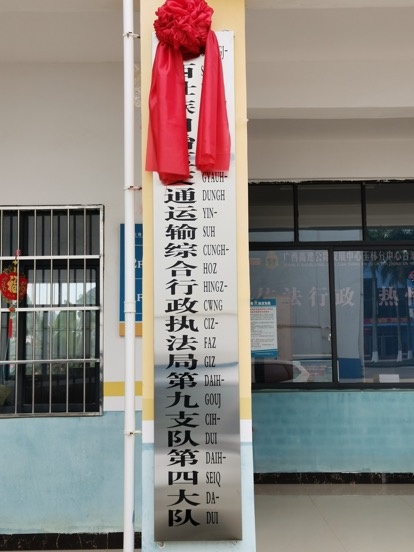 西壮族自治区交通运输综合行政执法局第九支队第四大队
GYAUH-
DUNGH
YIN-
SUH
CUNGH-
HOZ
HINGZ-
CWNG
CIZ-
FAZ
GIZ
DAIH-
GOUJ
CIH-
DUI
DAIH-
SEIQ
DA-
DUI
法行政 热